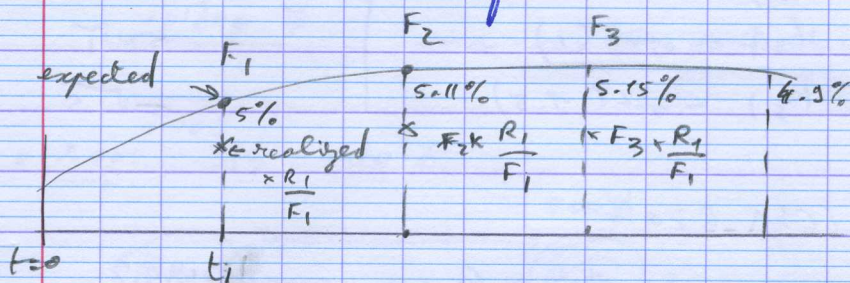 F1 F2 F3
expected
5% 5.11% 5.15% 4.9%
x ← realized
x R1/F1 x F2 x R1/F1 x F3 x R1/F1
t=0 t1